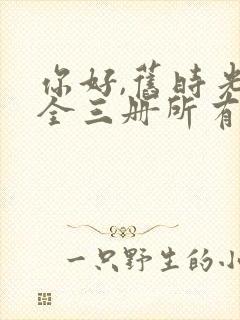 你好,舊時光
全三册所有
一只野生的小